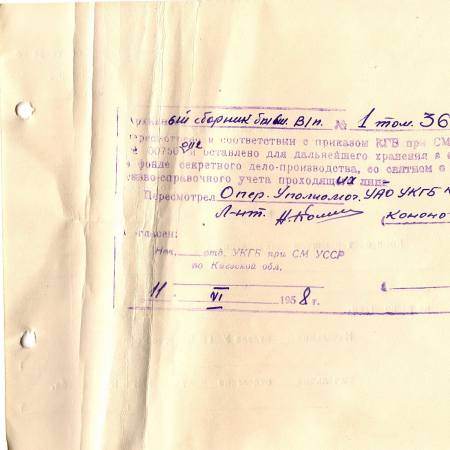 сборник бывш. В/п. № 1 том. 36
в соответствии с приказом КГБ при СМ
00750 и оставлено для дальнейшего хранения в
фонде секретного дело-производства, со снятием с
справочного учета проходящих лиц
Пересмотрел Опер. Уполномот. УАО УКГБ
Л-нт.
Нач. отд. УКГБ при СМ УССР
по Киевской обл.
11 VI 1958 г.